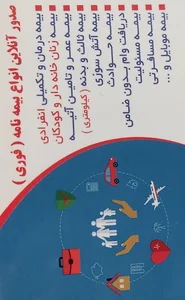 صدور آنلاین انواع بیمه نامه ( فوری )
بیمه درمان و تکمیلی انفرادی
بیمه زنان خانه دار و کودکان
بیمه عمر و تامین آتیه
بیمه ثالث و بدنه ( کیلومتری )
بیمه آتش سوزی
بیمه حوادث
دریافت وام بدون ضامن
بیمه مسئولیت
بیمه مسافرتی
بیمه موبایل و ...